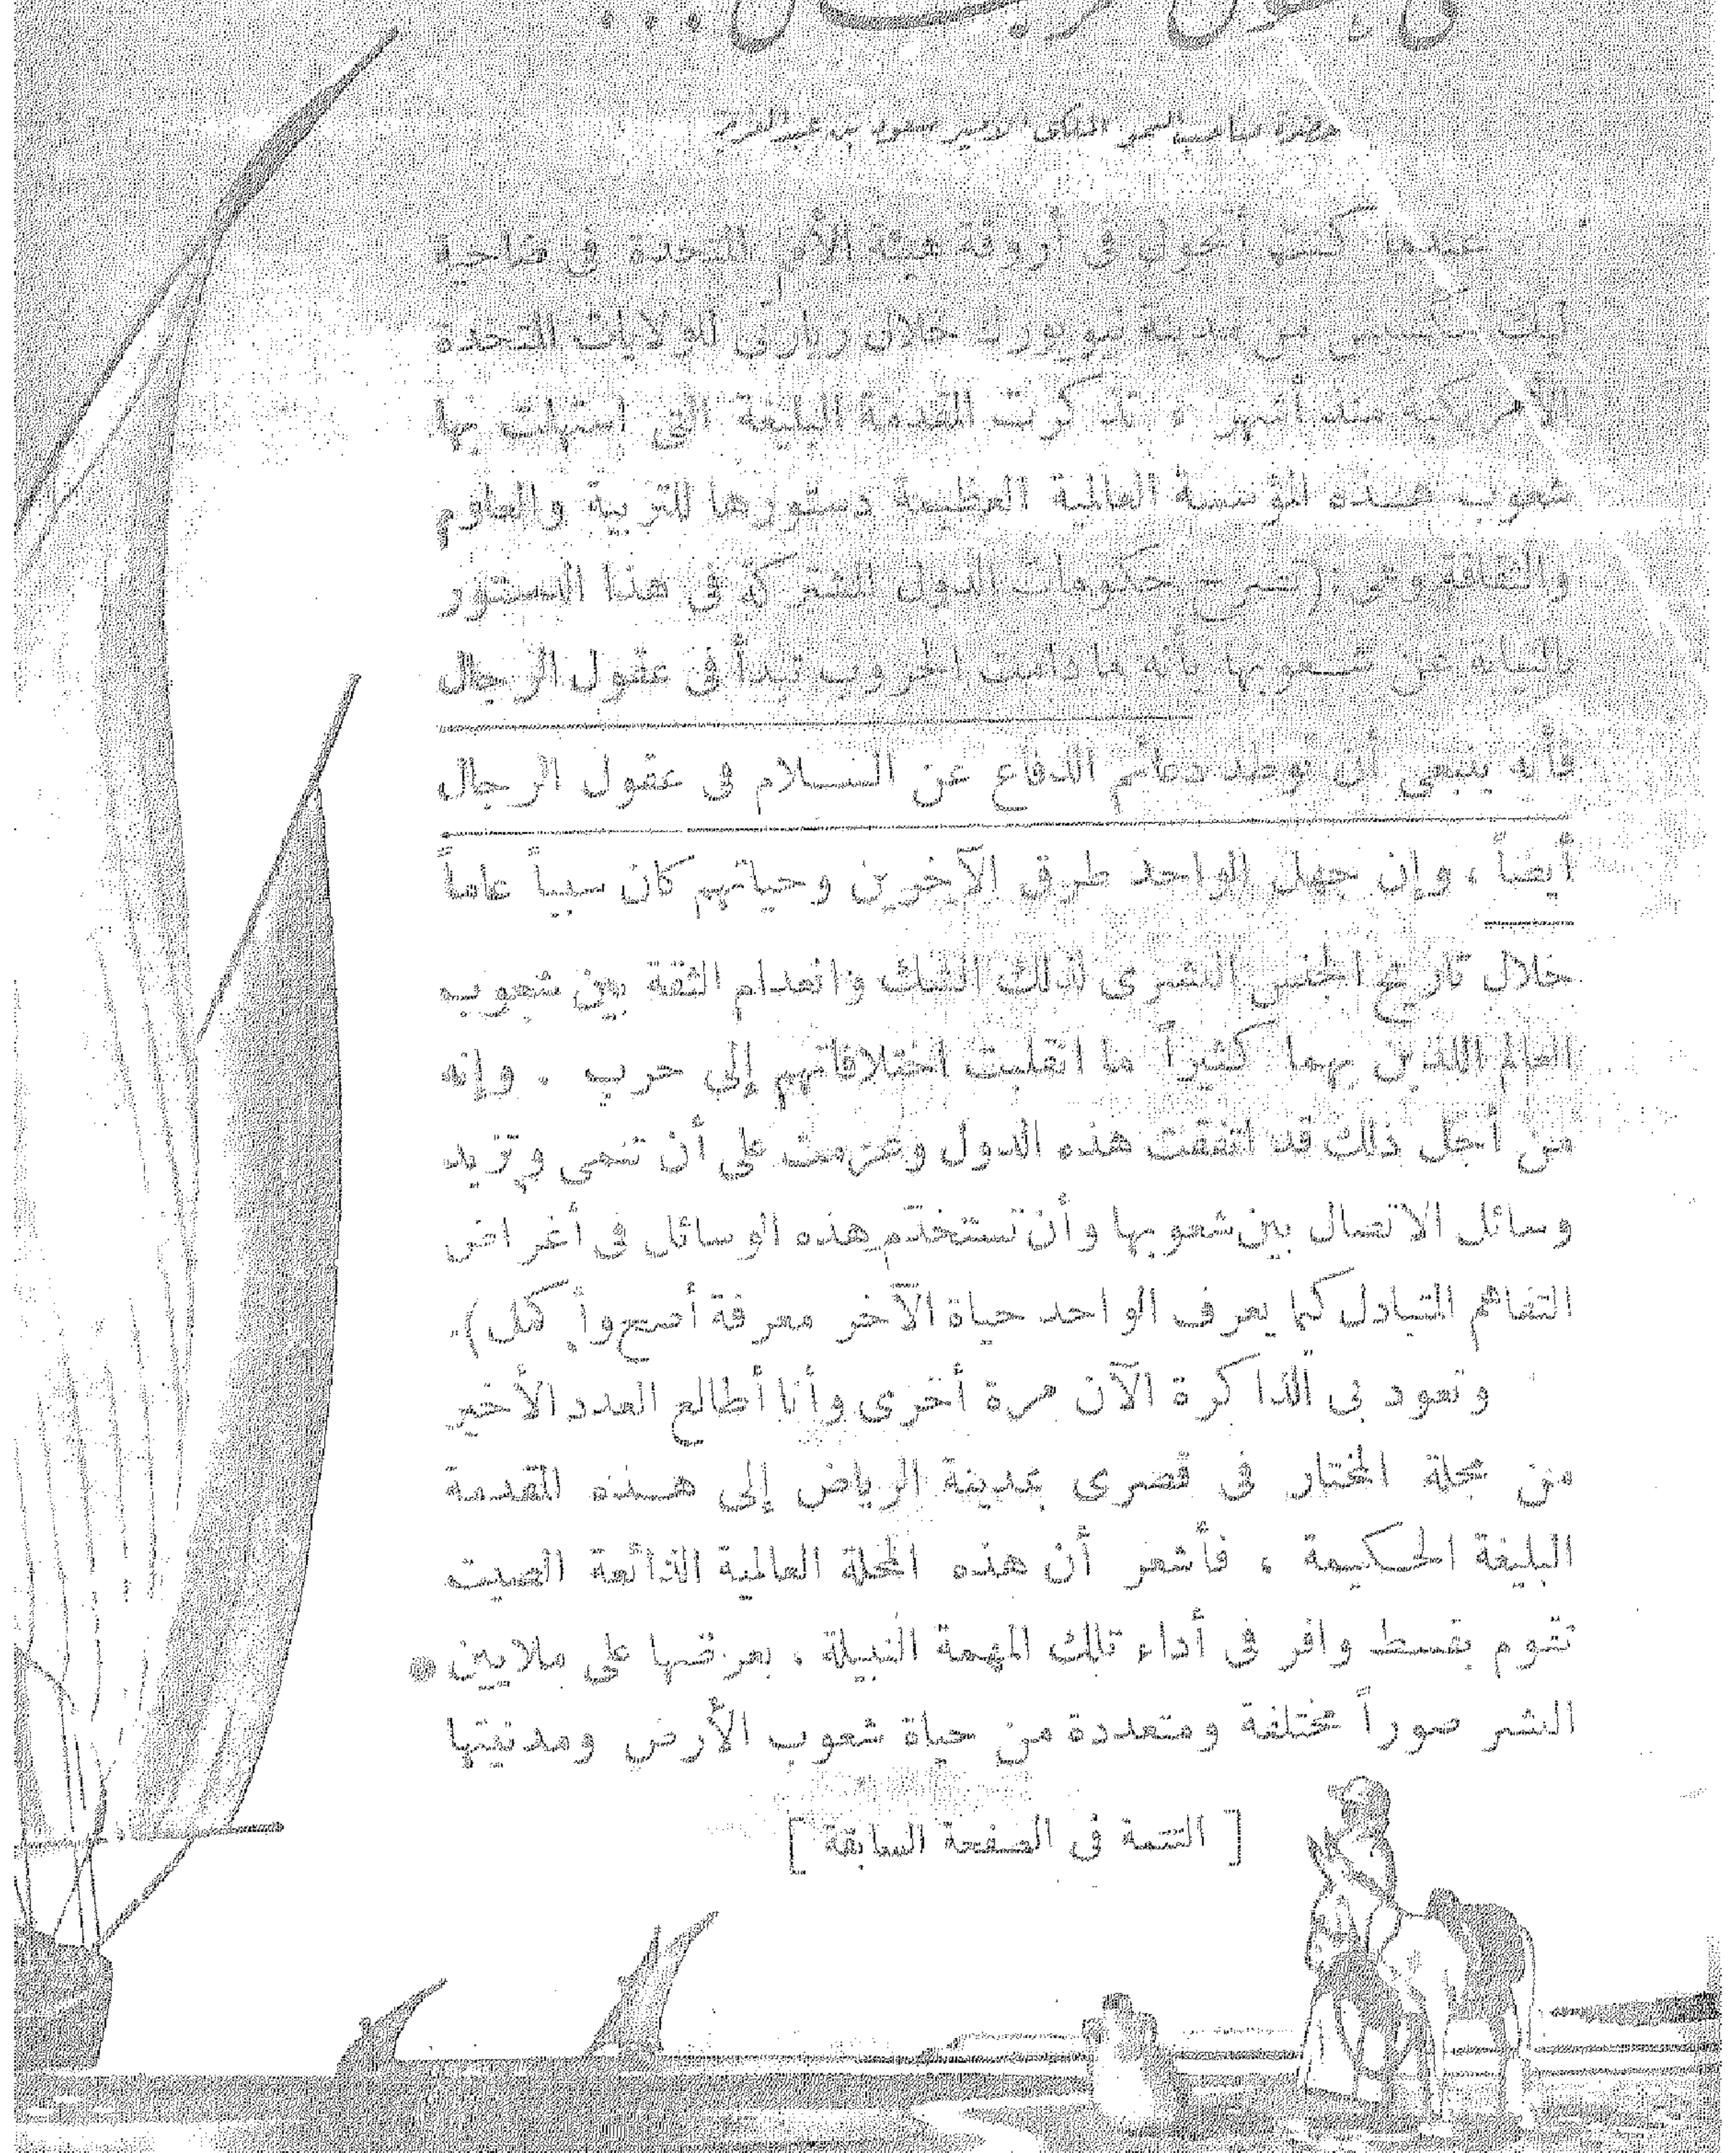 في عقول الرجال...
حضرة صاحب السمو الملكي الأمير سعود بن عبد العزيز
عندما كنت أتجول فى أروقة هيئة الأمم المتحدة فى ضاحية
ليك سكسس من مدينة نيويورك خلال زيارتى للولايات المتحدة
الأمريكية منذ أشهر ، تذكرت المقدمة البليغة التى استهلت بها
شعوب هذه المؤسسة العالمية العظيمة دستورها للتربية والعلوم
والثقافة وهى : (تصرح حكومات الدول المشتركة فى هذا الدستور
بالنيابة عن شعوبها بأنه ما دامت الحروب تبدأ فى عقول الرجال
فأنه ينبغى أن توطد دعائم الدفاع عن السلام فى عقول الرجال
أيضاً ، وإن جهل الواحد طرق الآخرين وحياتهم كان سبباً عاماً
خلال تاريخ الجنس البشرى لذلك الشك وانعدام الثقة بين شعوب
العالم اللذين بهما كثيراً ما انقلبت اختلافاتهم إلى حرب . وإنه
من أجل ذلك قد اتفقت هذه الدول وعزمت على أن تنمى وتزيد
وسائل الاتصال بين شعوبها وأن تستخدم هذه الوسائل فى أغراض
التفاهم المتبادل كما يعرف الواحد حياة الآخر معرفة أصح وأكمل).
وتعود بى الذاكرة الآن مرة أخرى وأنا أطالع العدد الأخير
من مجلة المختار فى قصرى بمدينة الرياض إلى هذه المقدمة
البليغة الحكيمة ، فأشعر أن هذه المجلة العالمية الذائعة الصيت
تقوم بقسط وافر فى أداء تلك المهمة النبيلة ، بعرضها على ملايين
البشر صوراً مختلفة ومتعددة من حياة شعوب الأرض ومدنيتها
[ التتمة فى الصفحة السابقة ]